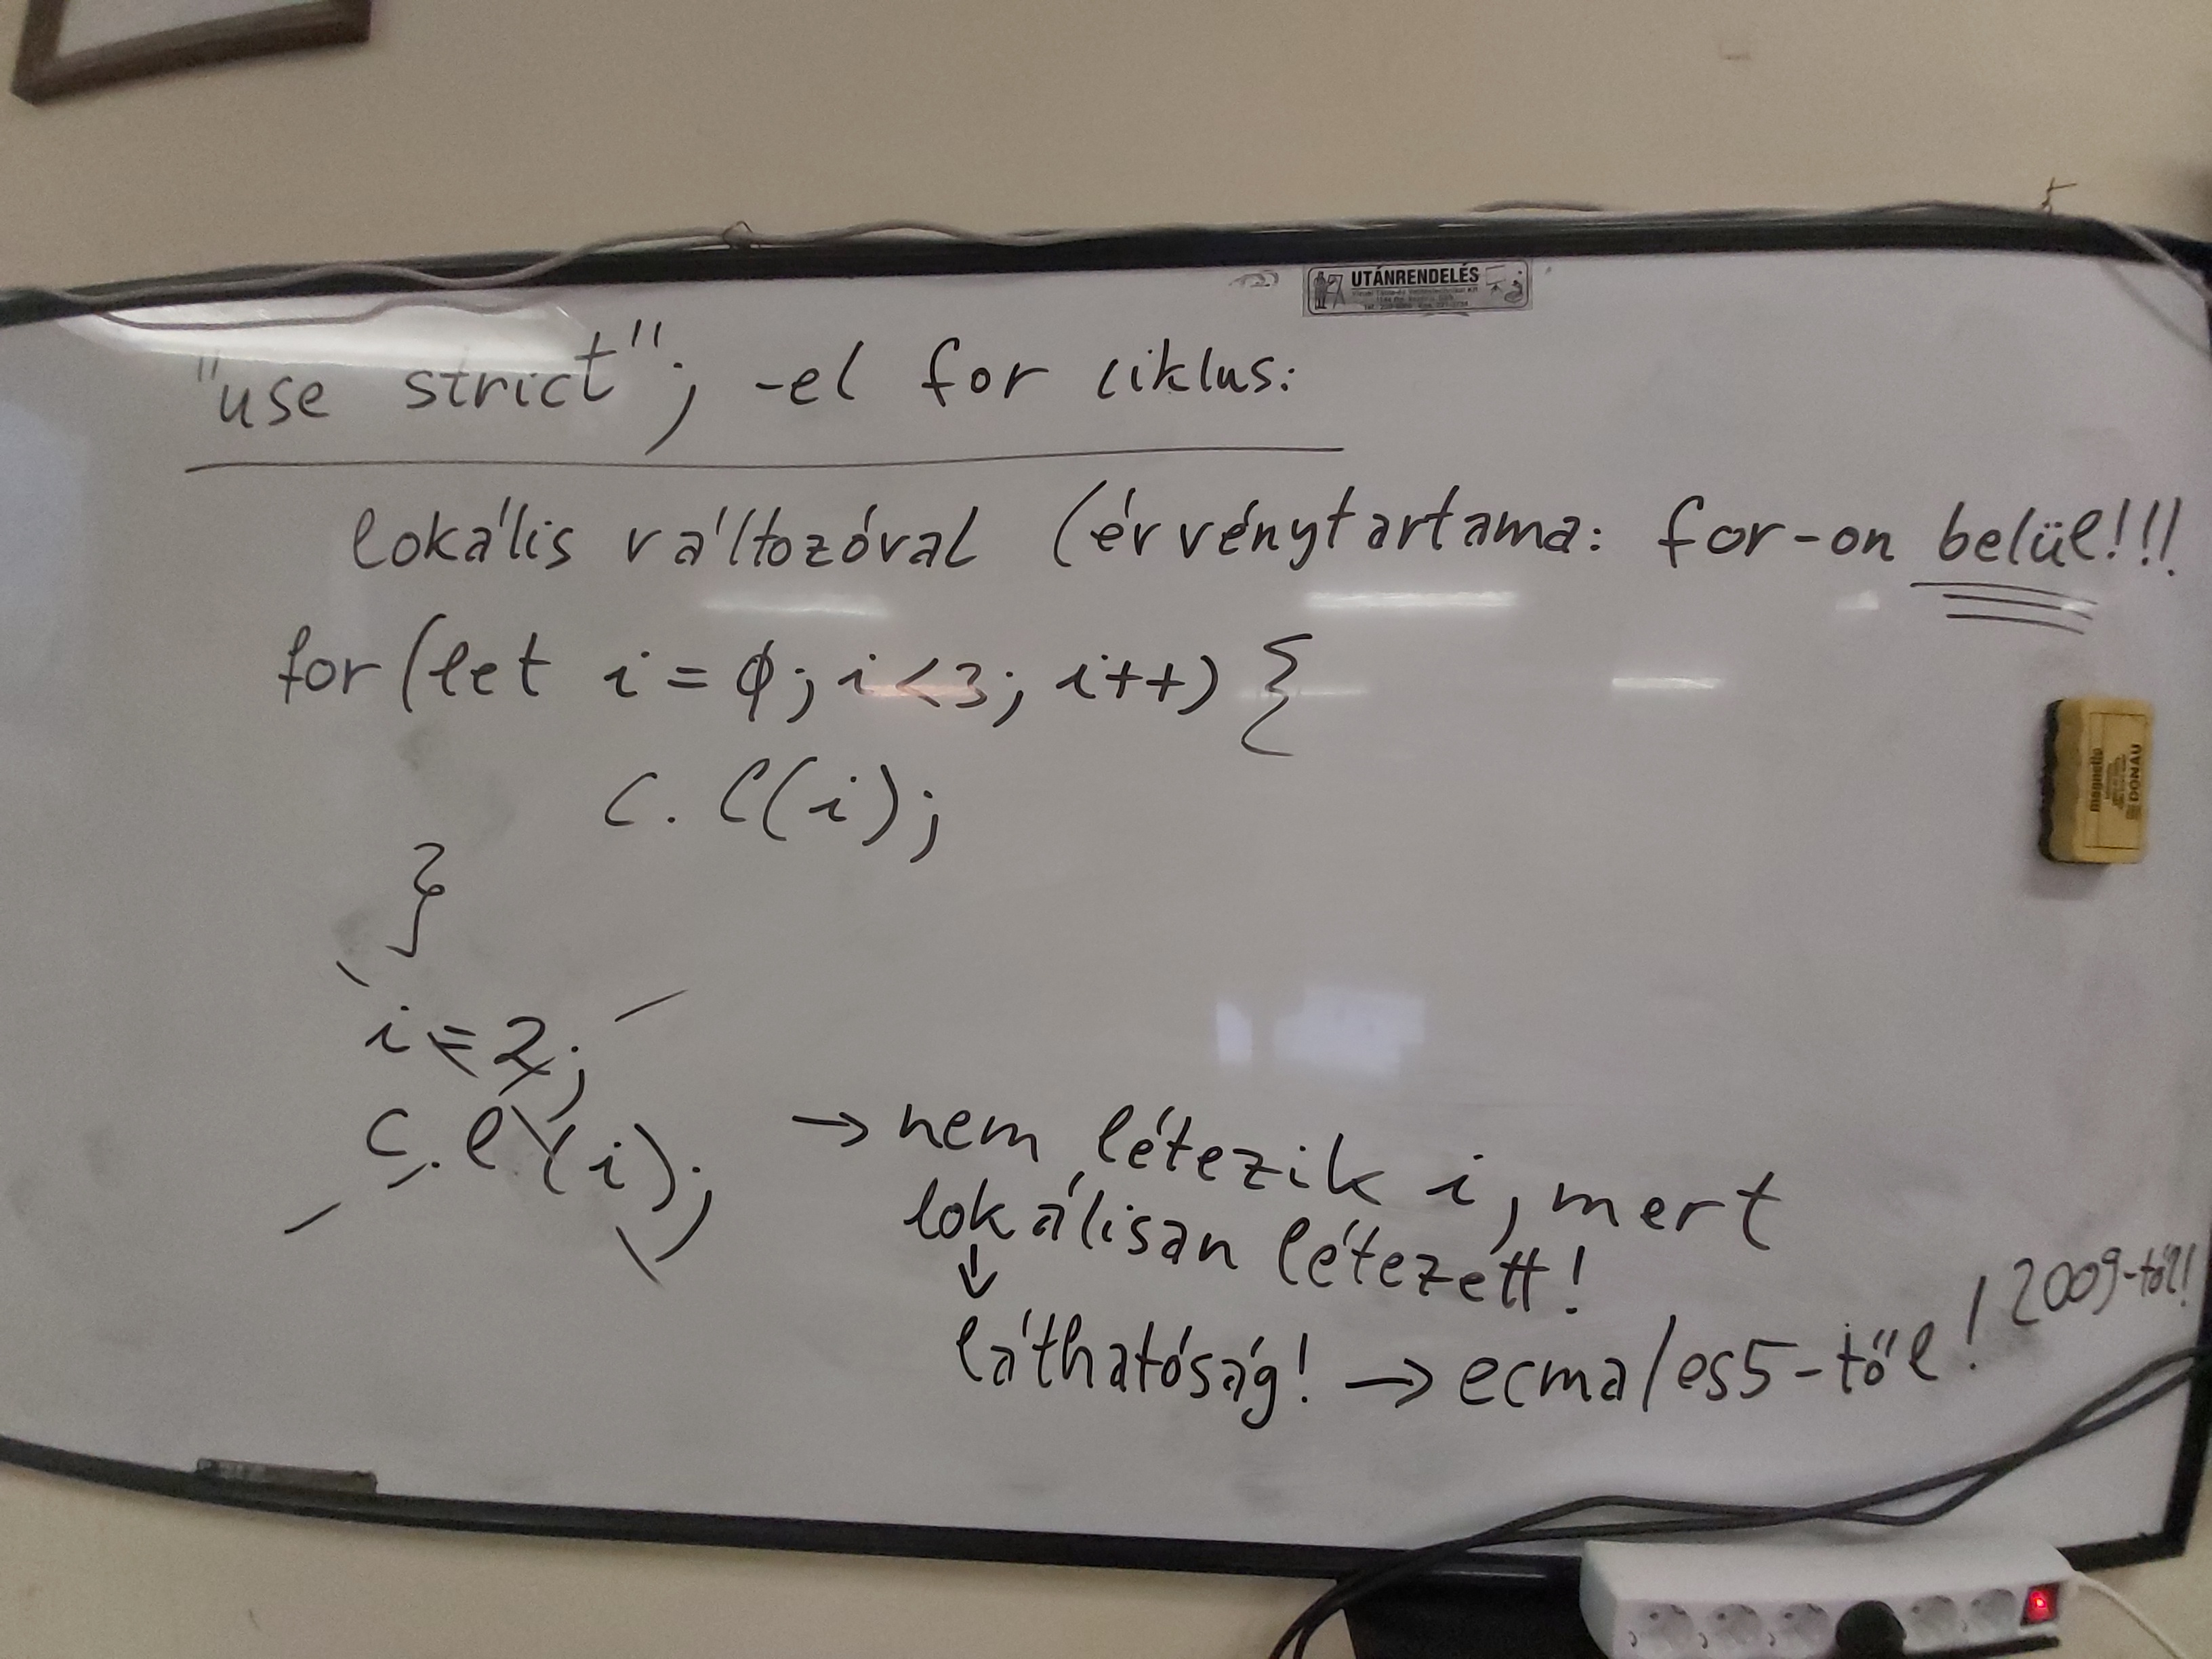 UTÁNRENDELÉS
"use strict"; -el for ciklus:
lokális változóval (érvénytartama: for-on belül!!!
for(let i=0; i<3; i++) {
c.l(i);
}
i=2;
c.l(i);
→ nem létezik i, mert
lokálisan létezett!
↓
láthatóság! → ecma/es5-től! 2009-től!
magnetic
DONAU